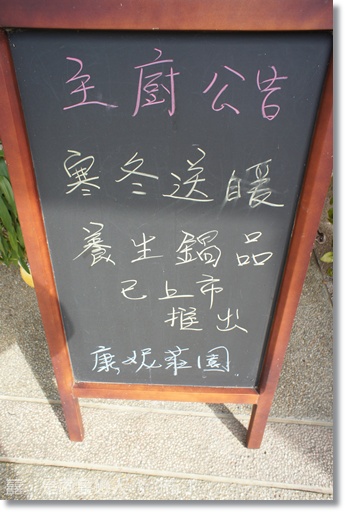 主廚公告
寒冬送暖
養生鍋品
已上市
推出
康妮莊園